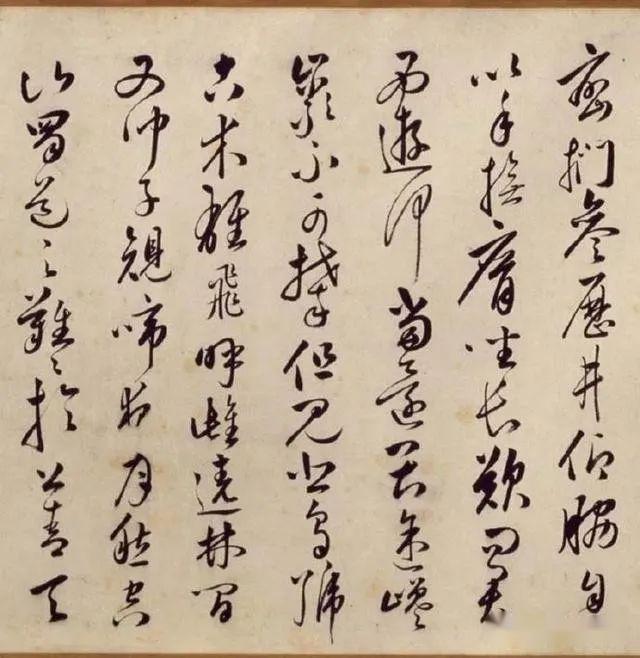 巒捫參歷井仰脇息
以手撫膺坐長歎問君
西遊何當還畏途巉
巖不可攀但見悲鳥號
古木雄飛呼雌遶林間
又聞子規啼夜月愁空
山蜀道之難〻於上青天